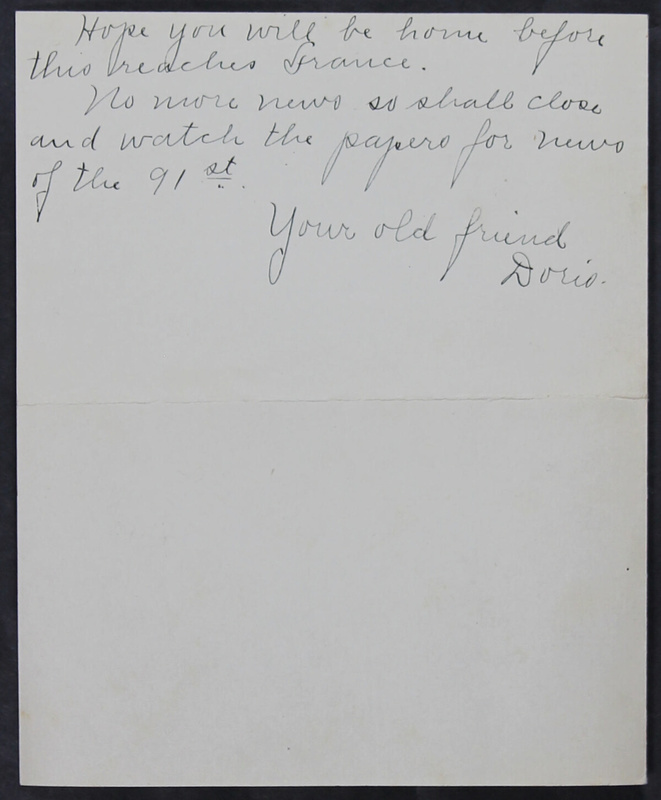 Hope you will be home before
this reaches France.
No more news so shall close
and watch the papers for news
of the 91st.
Your old friend
Doris.